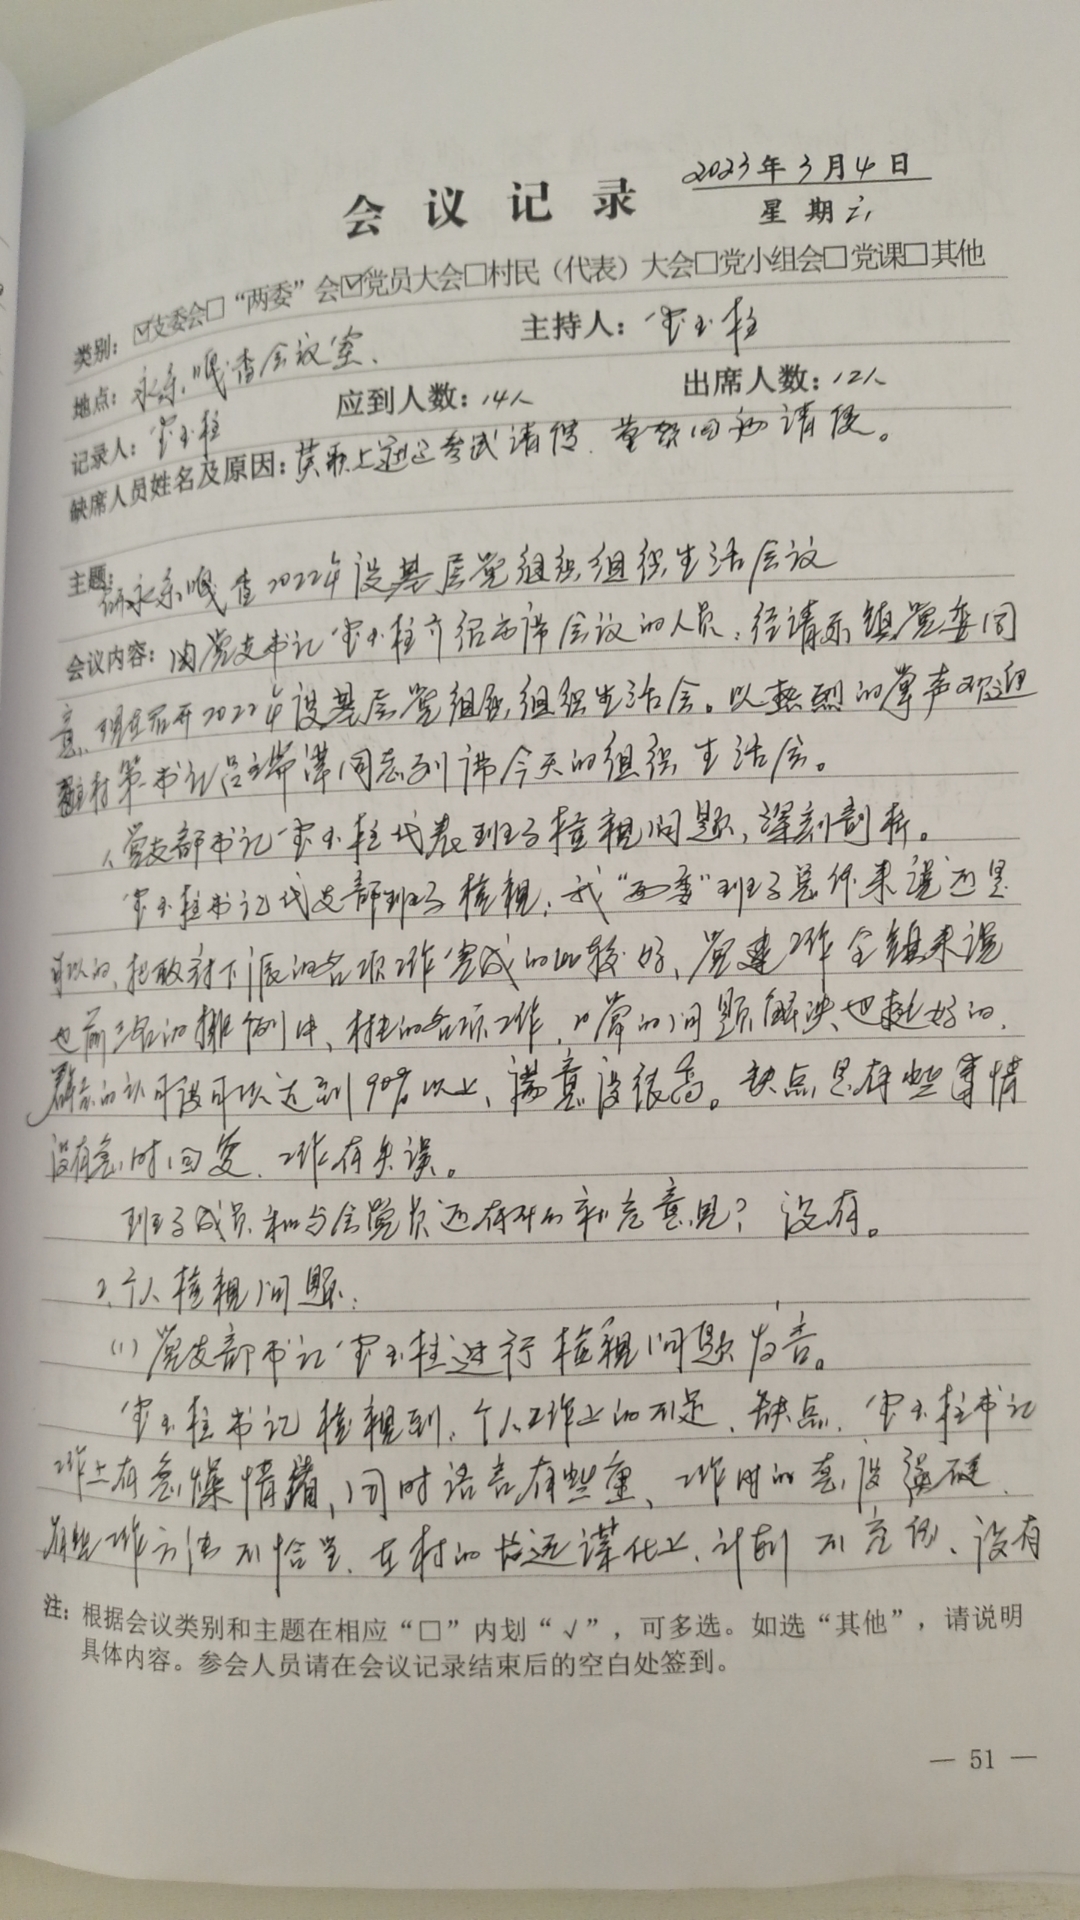 会议记录
2023年3月4日
星期六
类别：☑支委会□“两委”会☑党员大会□村民（代表）大会□党小组会□党课□其他
地点：永乐嘎查会议室、
主持人：宝玉柱
记录人：宝玉柱
应到人数：14人
出席人数：12人
缺席人员姓名及原因：考试请假、请假。
主题：永乐嘎查2022年度基层党组织组织生活会议
会议内容：由党支书记宝玉柱介绍出席会议的人员，经请示镇党委同
意，现在召开2022年度基层党组织组织生活会。以热烈的掌声欢迎
驻村第一书记同志列席今天的组织生活会。
1、党支部书记宝玉柱代表班子检视问题，深刻剖析。
宝玉柱书记代支部班子检视：我“两委”班子总体来说还是
可以的，把下派的各项工作完成的比较好、党建工作全镇来说
也前三名的排列中，村里的各项工作，日常的问题解决也挺好的，
群众的认可度可以达到90%以上、满意度很高。缺点是有些事情
没有急时回复、工作有失误。
班子成员和与会党员还有什么补充意见？没有。
2、个人检视问题：
（1）党支部书记宝玉柱进行检视问题发言。
宝玉柱书记检视到：个人工作上的不足、缺点，宝玉柱书记
工作上有急燥情绪，同时语言有些重、工作时的态度强硬、
有些工作方法不恰当、在村的长远谋化上、计划不充份、没有
注：根据会议类别和主题在相应“□”内划“√”，可多选。如选“其他”，请说明
具体内容。参会人员请在会议记录结束后的空白处签到。
— 51 —